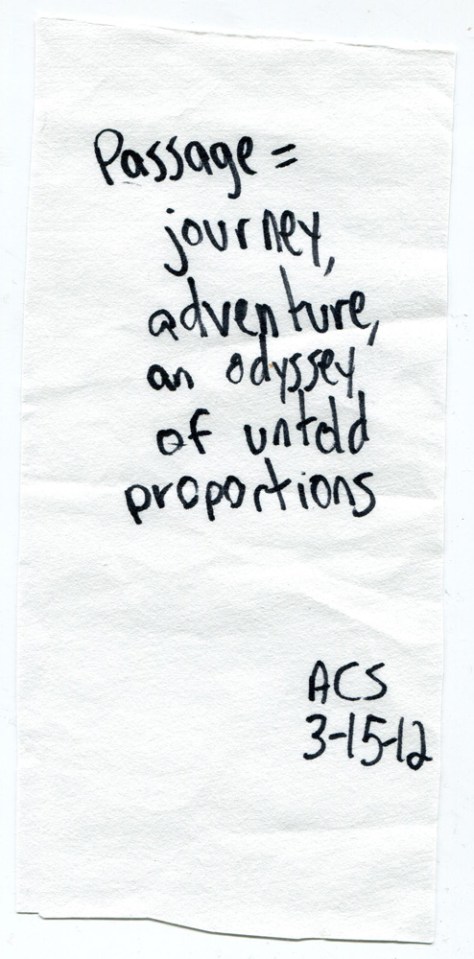 Passage =
journey,
adventure,
an odyssey
of untold
proportions
ACS
3-15-12